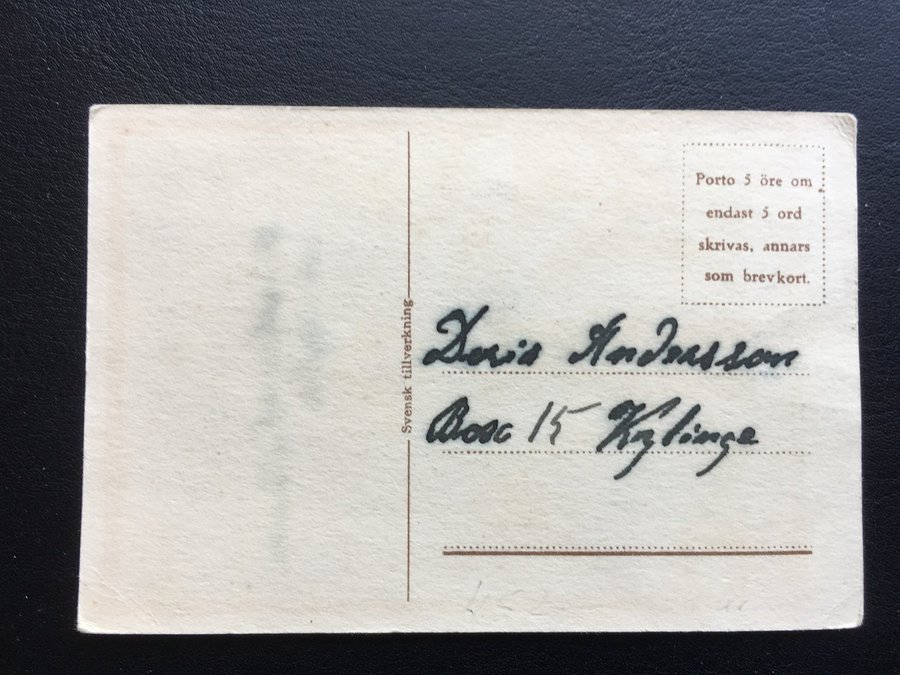 Porto 5 öre om
endast 5 ord
skrivas, annars
som brevkort.
Svensk tillverkning
Doris Andersson
Box 15 Kylinge